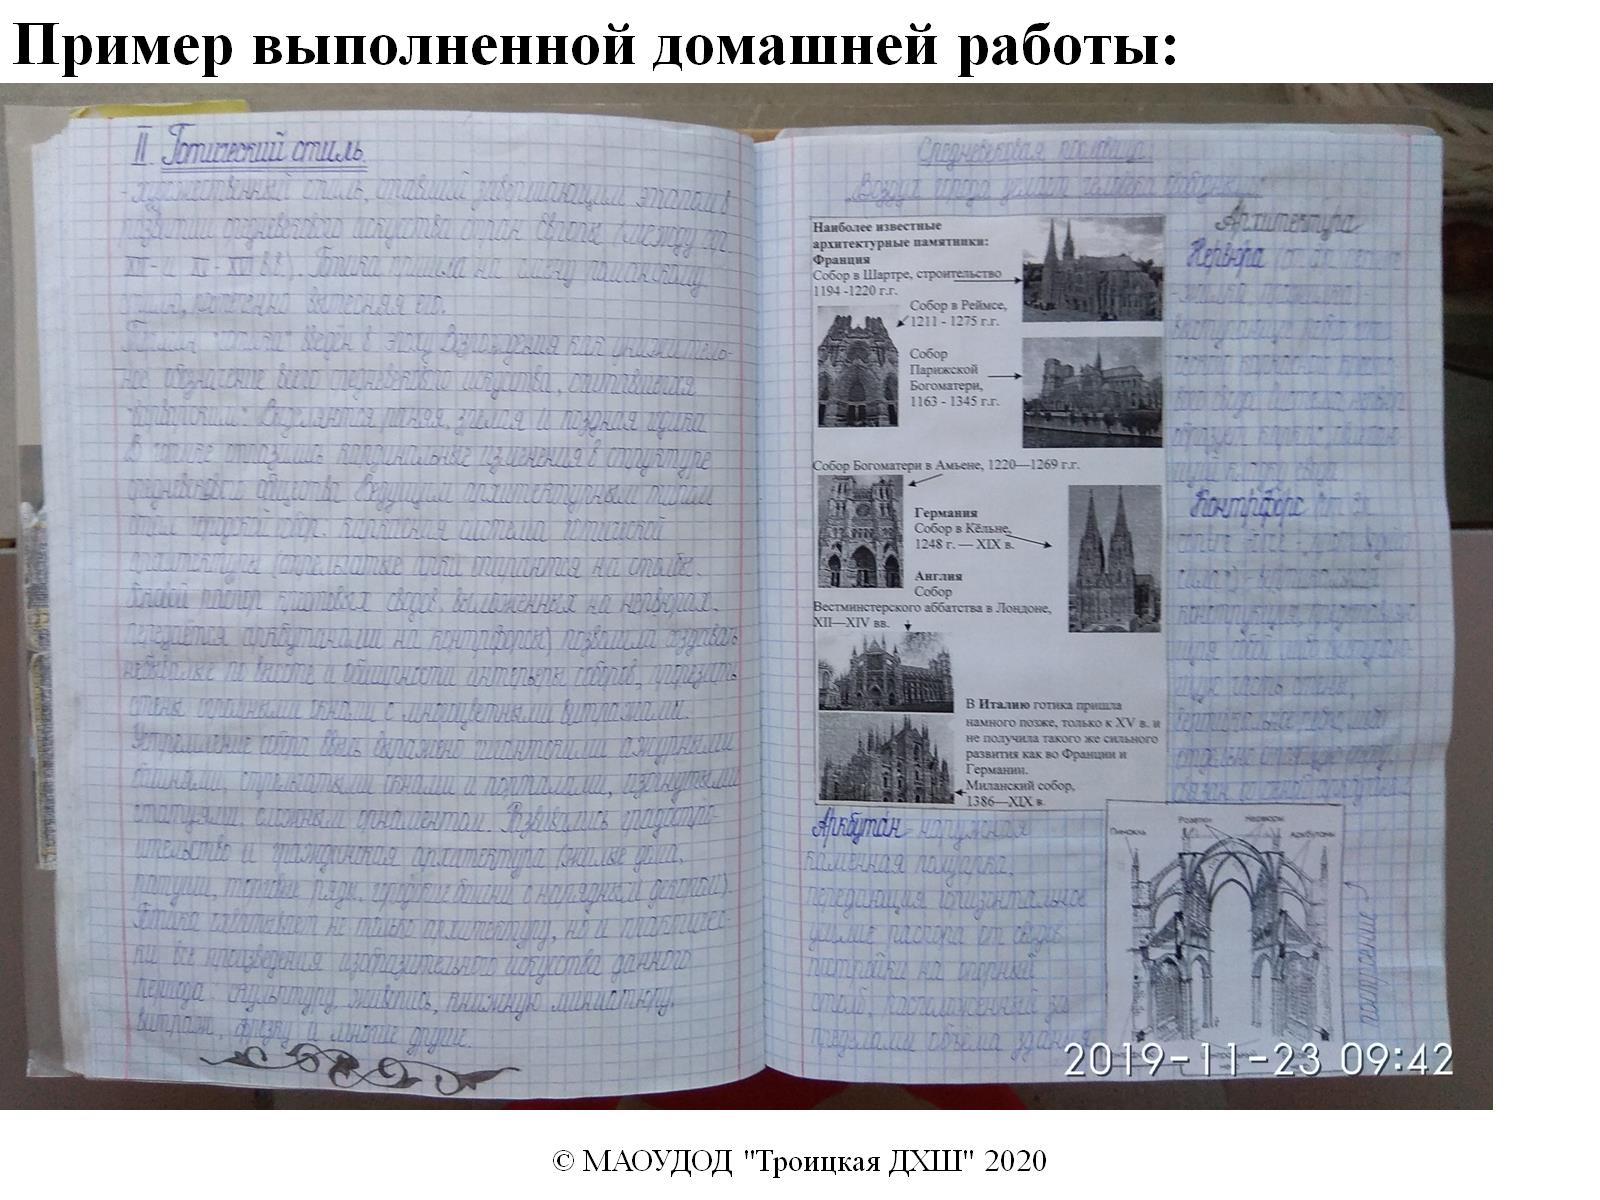 Пример выполненной домашней работы:
II. Готический стиль.
- художественный стиль, ставший завершающим этапом в
развитии средневекового искусства стран Европы (между
XII- и XV-XVI в.в.). Готика пришла на смену романскому
стилю, постепенно вытесняя его.
Термин "готика" введён в эпоху Возрождения как уничижитель-
ное обозначение всего средневекового искусства, считавшегося
"варварским". Выделяются ранняя, зрелая и поздняя готика
В готике отразились кардинальные изменения в структуре
средневекового общества. Ведущим архитектурным типом
стал городской собор. Каркасная система готической
архитектуры (стрельчатые арки опираются на столбы.
Боковой распор крестовых сводов, выложенных на нервюрах,
передаётся аркбутанами на контрфорсы) позволила создавать
небывалые по высоте и обширности интерьеры соборов, прорезать
стены огромными окнами с многоцветными витражами.
Устремление собора ввысь выражено гигантскими ажурными
башнями, стрельчатыми окнами и порталами, изогнутыми
статуями, сложным орнаментом. Развивались градостро-
ительство и гражданская архитектура (жилые дома,
ратуши, торговые ряды, городские башни с нарядным декором).
Готика охватывает не только архитектуру, но и практичес-
ки все произведения изобразительного искусства данного
периода: скульптуру, живопись, книжную миниатюру,
витраж, фреску и многие другие.
Средневековая пословица:
"Воздух города делает человека свободным"
Наиболее известные
архитектурные памятники:
Франция
Собор в Шартре, строительство
1194 -1220 г.г.
Собор в Реймсе,
1211 - 1275 г.г.
Собор
Парижской
Богоматери,
1163 - 1345 г.г.
Собор Богоматери в Амьене, 1220—1269 г.г.
Германия
Собор в Кёльне,
1248 г. — XIX в.
Англия
Собор
Вестминстерского аббатства в Лондоне,
XII—XIV вв.
В Италию готика пришла
намного позже, только к XV в. и
не получила такого же сильного
развития как во Франции и
Германии.
Миланский собор,
1386—XIX в.
Архитектура
Нервюра (от
выступающее ребро
каркасного
свода
образует каркас,
кладку свода.
Контрфорс
force -
сила) - вертикальная
конструкция,
собой либо
часть стены,
вертикальное ребро, либо
отдельно стоящую опору,
Аркбутан - наружная
каменная полуарка,
передающая горизонтальное
усилие распора от сводов
постройки на опорный
столб, расположенный за
пределами объёма здания
Пинакль
Розетки
Нервюры
Аркбутаны
контрфорс
2019-11-23 09:42
© МАОУДОД "Троицкая ДХШ" 2020